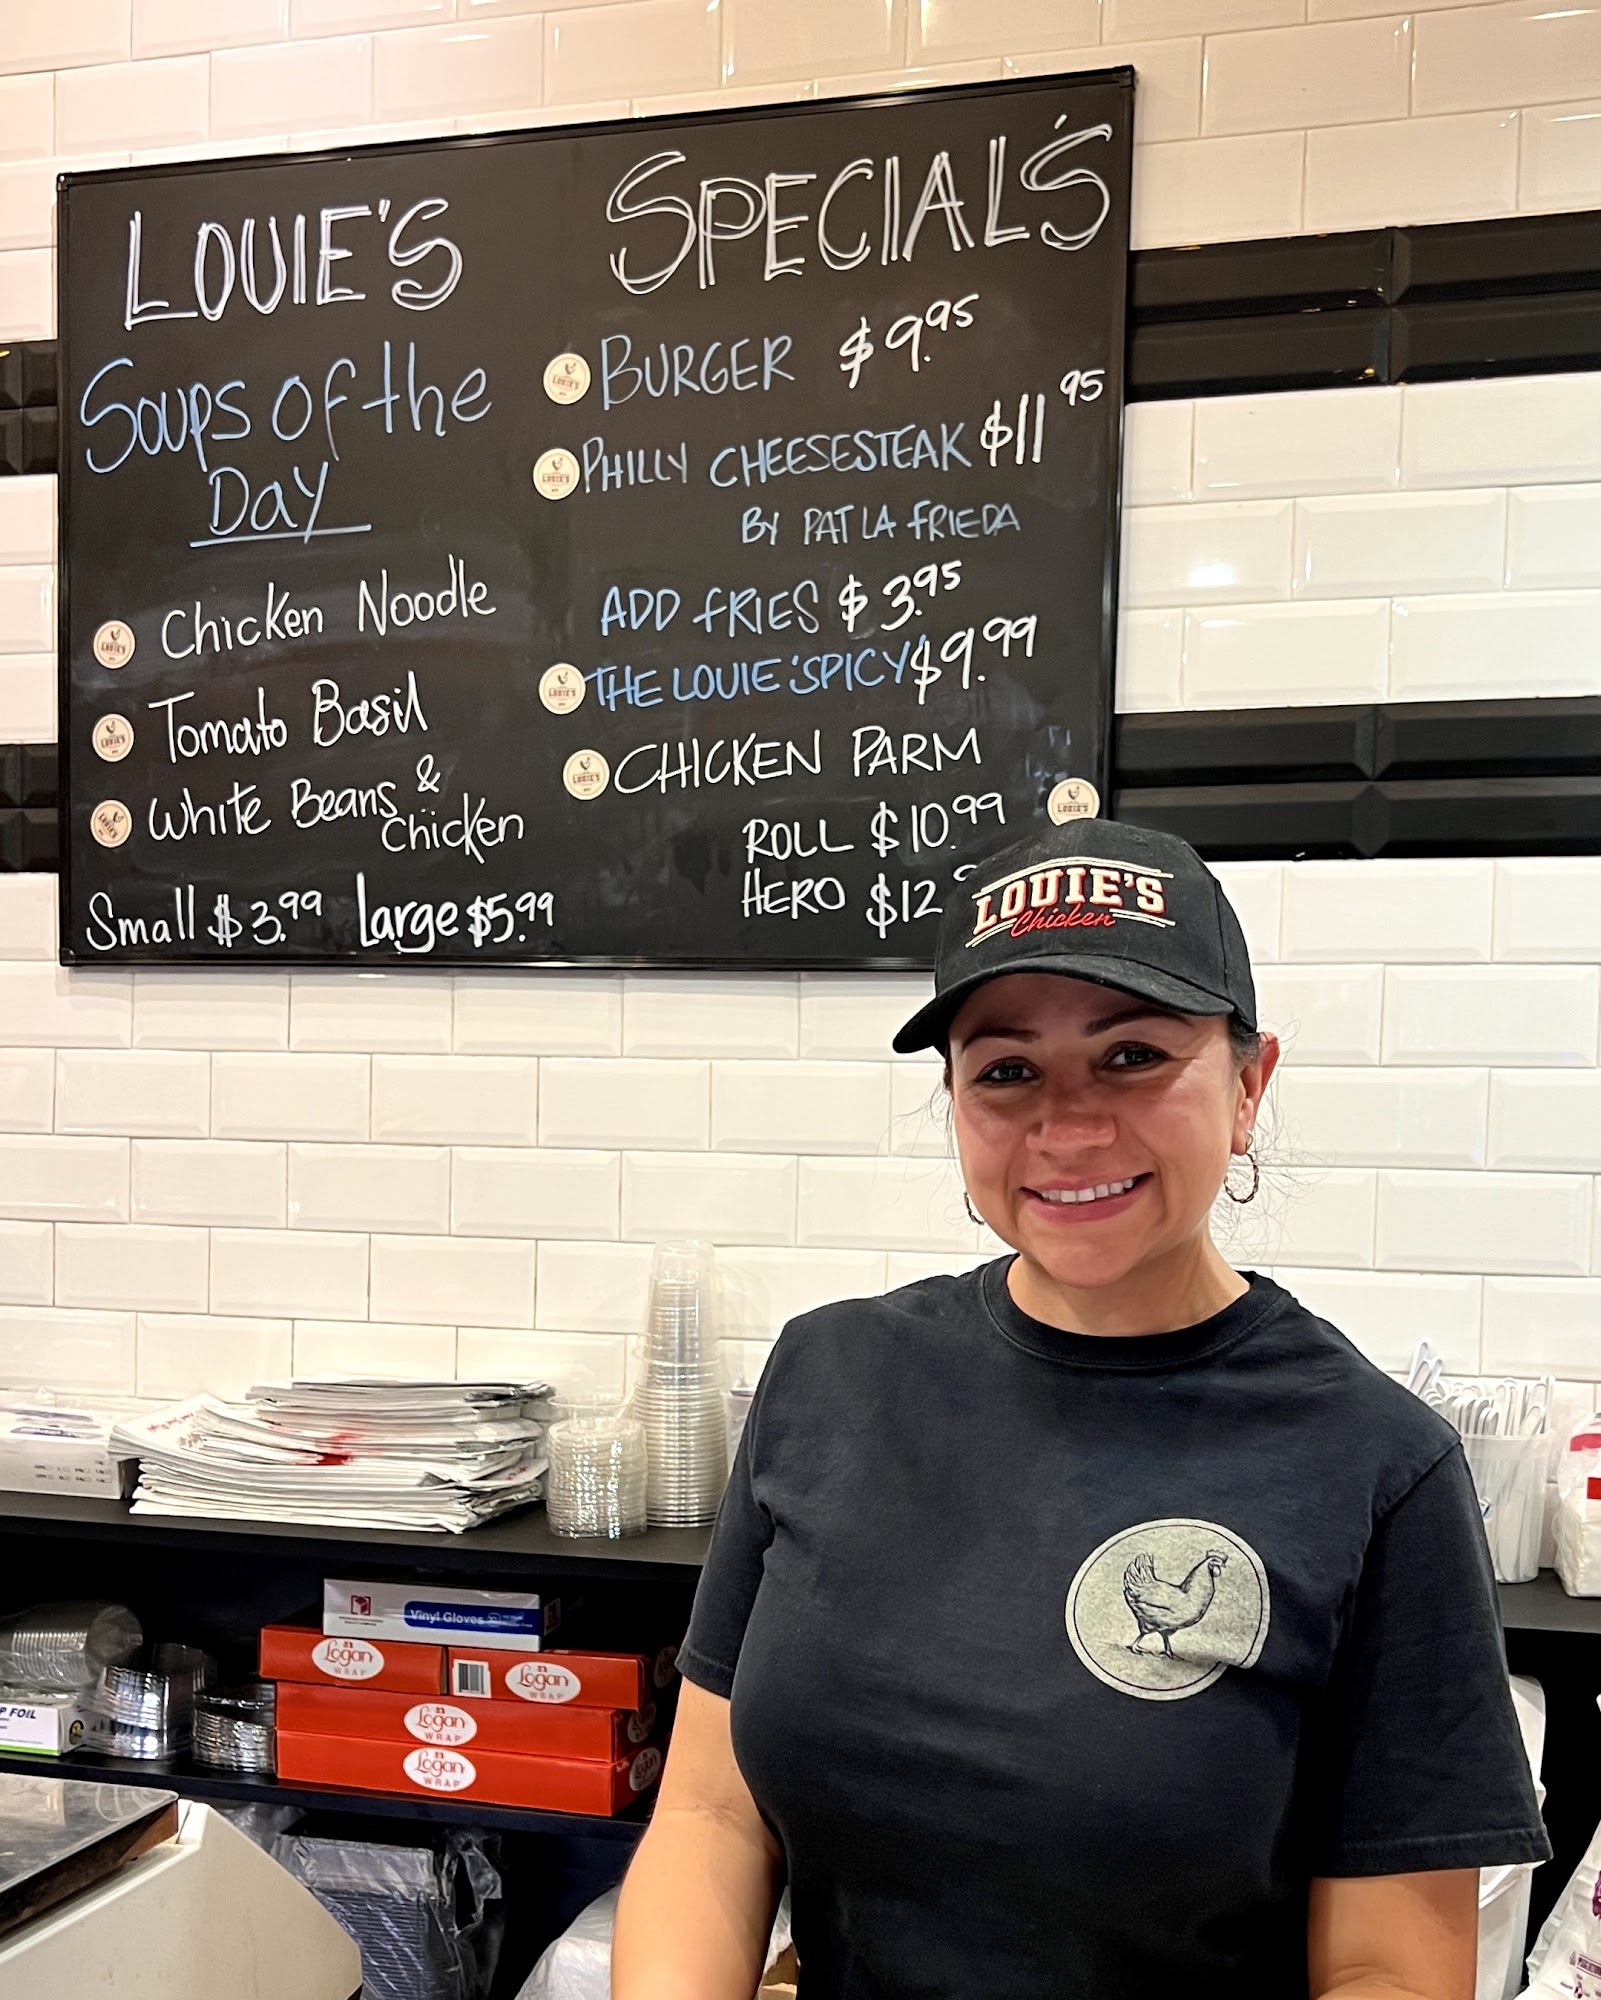 LOUIE'S
Soups of the
Day
Chicken Noodle
Tomato Basil
White Beans &
Chicken
Small $3.99 Large $5.99
SPECIAL'S
BURGER $9.95
PHILLY CHEESESTEAK $11.95
BY PAT LA FRIEDA
ADD FRIES $3.95
THE LOUIE'SPICY $9.99
CHICKEN PARM
ROLL $10.99
HERO $12
LOUIE'S
Chicken
Vinyl Gloves
Logan
WRAP
Logan
WRAP
Logan
WRAP
Logan
WRAP
FOIL